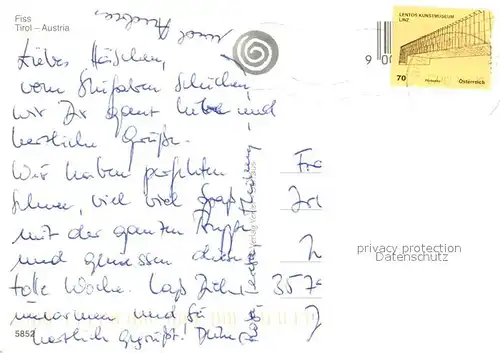 Fiss
Tirol – Austria
Liebes Häschen,
vom Skifahren schicken
wir Dir ganz liebe und
herzliche Grüße.
Wir haben perfekten
Schnee, viel viel Spaß
mit der ganzen Truppe
und genießen diese
tolle Woche. Lass Dich
umarmen und sei
herzlich gegrüßt! Deine
5852
LENTOS KUNSTMUSEUM
LINZ
70
Österreich
9 00
357
privacy protection
Datenschutz